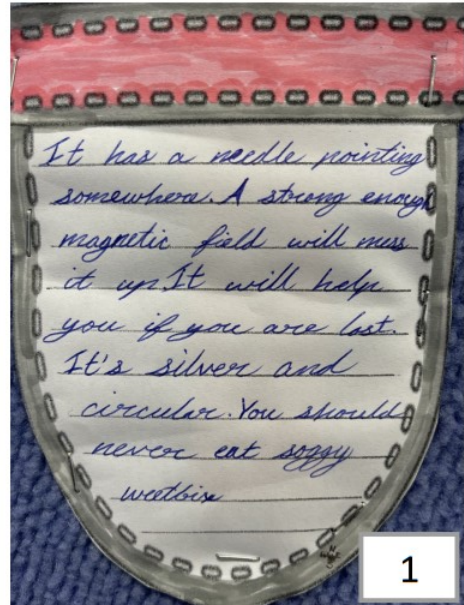 It has a needle pointing
somewhere. A strong enough
magnetic field will mess
it up. It will help
you if you are lost.
It's silver and
circular. You should
never eat soggy
weetbix
1